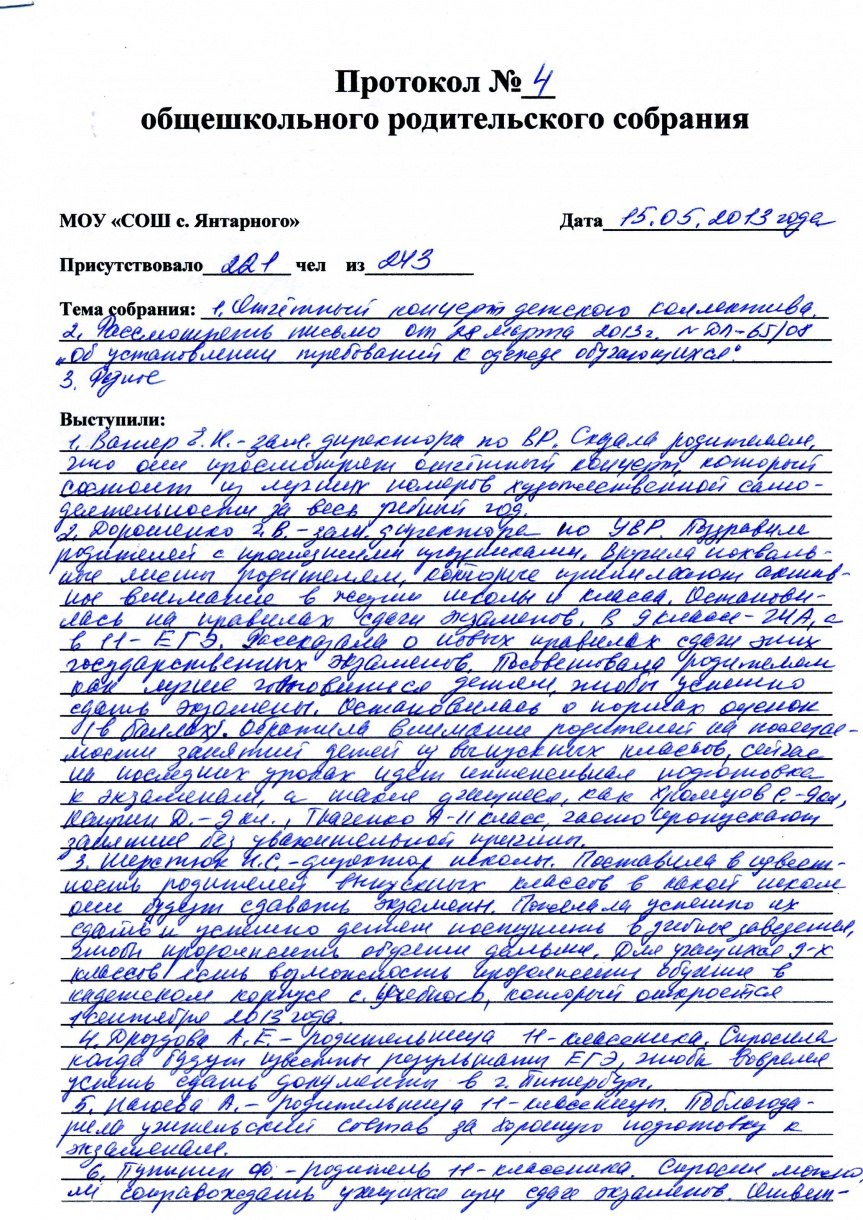 Протокол № 4
общешкольного родительского собрания
МОУ «СОШ с. Янтарного» Дата 15.05.2013 года
Присутствовало 221 чел из 243
Тема собрания: 1. Отчётный концерт детского коллектива.
2. Рассмотреть письмо от 28 марта 2013г. № ДЛ-65/08
„Об установлении требований к одежде обучающихся".
3. Разное
Выступили:
1. Вагнер Е.Н.- зам. директора по ВР. Сказала родителям,
что они просмотрят отчётный концерт, который
состоит из лучших номеров художественной само-
деятельности за весь учебный год.
2. Дорошенко В.- зам. директора по УВР. Поздравила
родителей с прошедшими праздниками. Вручила похваль-
ные листы родителям, которые принимают актив-
ные внимание в жизни школы и класса. Останови-
лась на правилах сдачи экзаменов. В 9 классе- ГИА, а
в 11- ЕГЭ. Рассказала о новых правилах сдачи этих
государственных экзаменов. Посоветовала родителям
как лучше готовиться детям, чтобы успешно
сдать экзамены. Остановилась о нормах оценок
(в баллах). Обратила внимание родителей на посещае-
мость занятий детей из выпускных классов, сейчас
на последних уроках идет интенсивная подготовка
к экзаменам, а такие учащиеся, как Хромцов С.-9кл,
Д.- 9 кл., Ткаченко А-11 класс, часто пропускают
занятие без уважительной причины.
3. Шерстюк Н.С.-директор школы. Поставила в извест-
ность родителей выпускных классов в какой школе
они будут сдавать экзамены. Пожелала успешно их
сдать и успешно детям поступить в учебные заведения,
чтобы продолжить обучение дальше. Для учащихся 9-х
классов есть возможность продолжения обучение в
кадетском корпусе с. Учебного, который откроется
1 сентября 2013 года.
4. Дроздова А.Е.- родительница 11-классника. Спросила
когда будут известны результаты ЕГЭ, чтобы вовремя
успеть сдать документы в г. Питербург.
5. Нагоева А.- родительница 11-классницы. Поблагода-
рила учительский состав за хорошую подготовку к
экзаменам.
6. Ф.- родитель 11-классника. Спросил можно
ли сопровождать учащихся при сдаче экзаменов. Ответ-